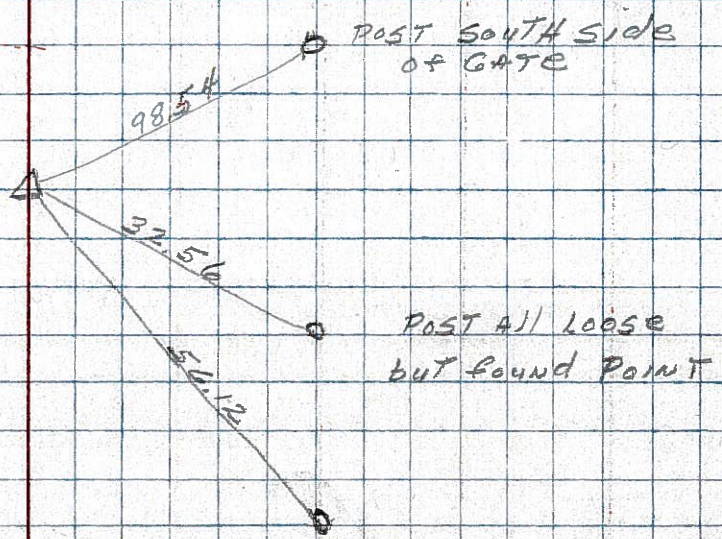 POST SOUTH Side
of GATE
98.54
32.56
POST All Loose
but found POINT
56.12